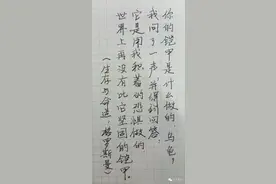 你的铠甲是什么做的，乌龟，
我问了一声，并得到回答：
它是用我积蓄的恐惧做的
世界上再没有比它坚固的铠甲。
（生存与命运，格罗斯曼）